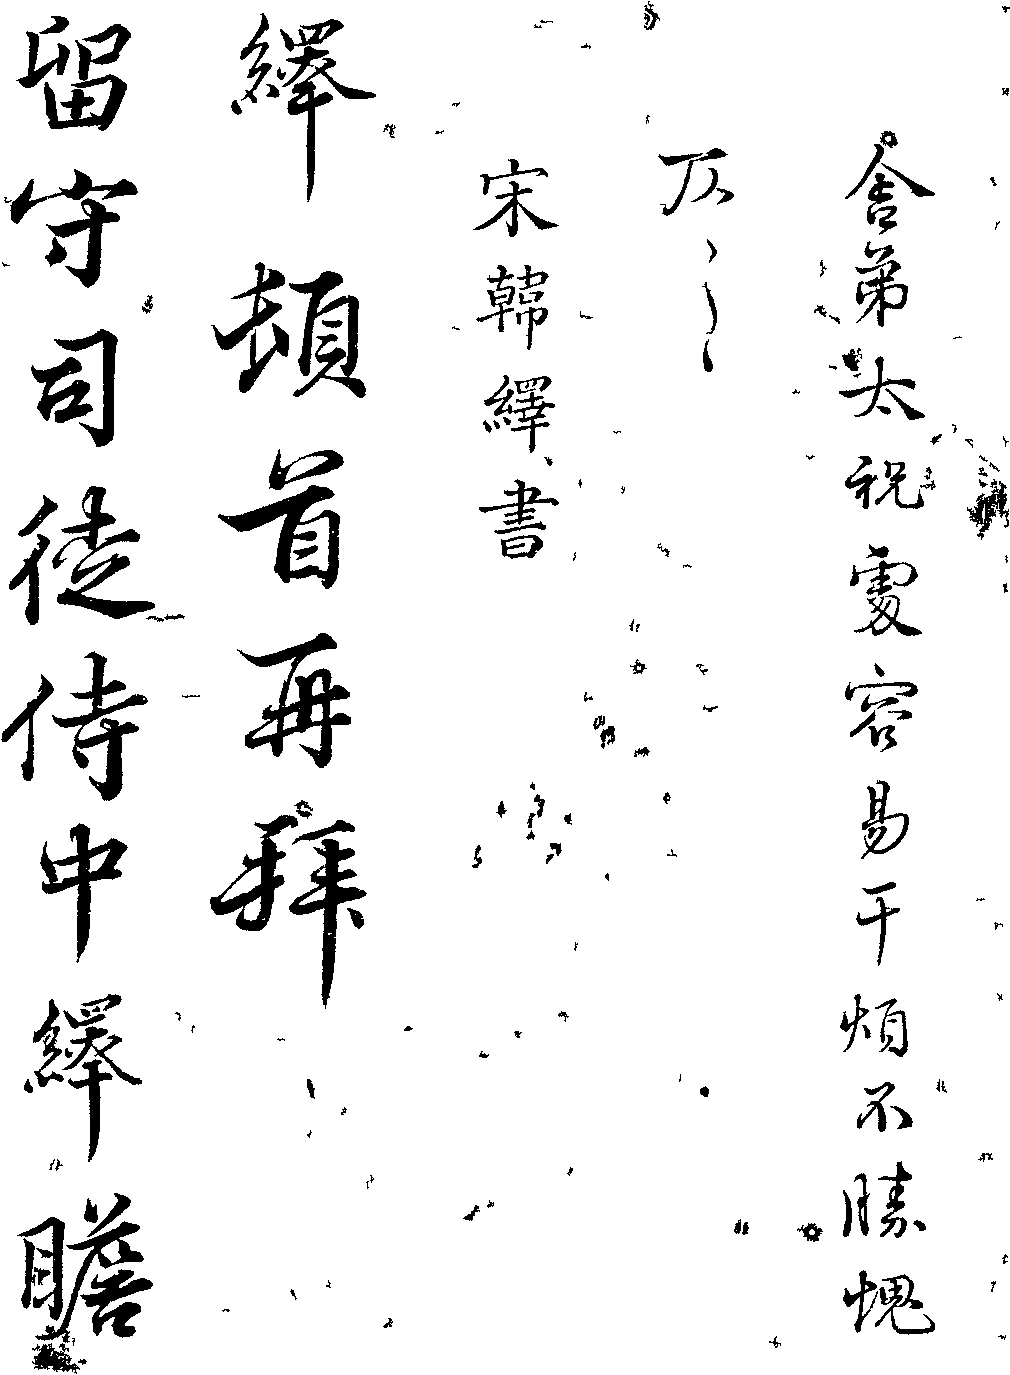 舍弟太祝處容易干煩不勝愧
仄
宋韓繹書
繹頓首再拜
留守司徒侍中繹瞻